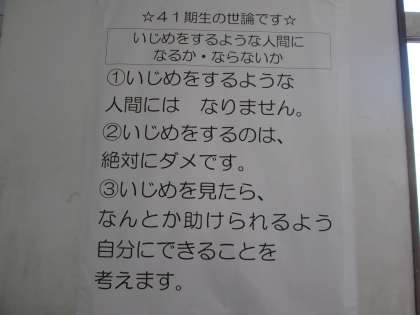 ☆４１期生の世論です☆
いじめをするような人間に
なるか・ならないか
①いじめをするような
人間には　なりません。
②いじめをするのは、
絶対にダメです。
③いじめを見たら、
なんとか助けられるよう
自分にできることを
考えます。